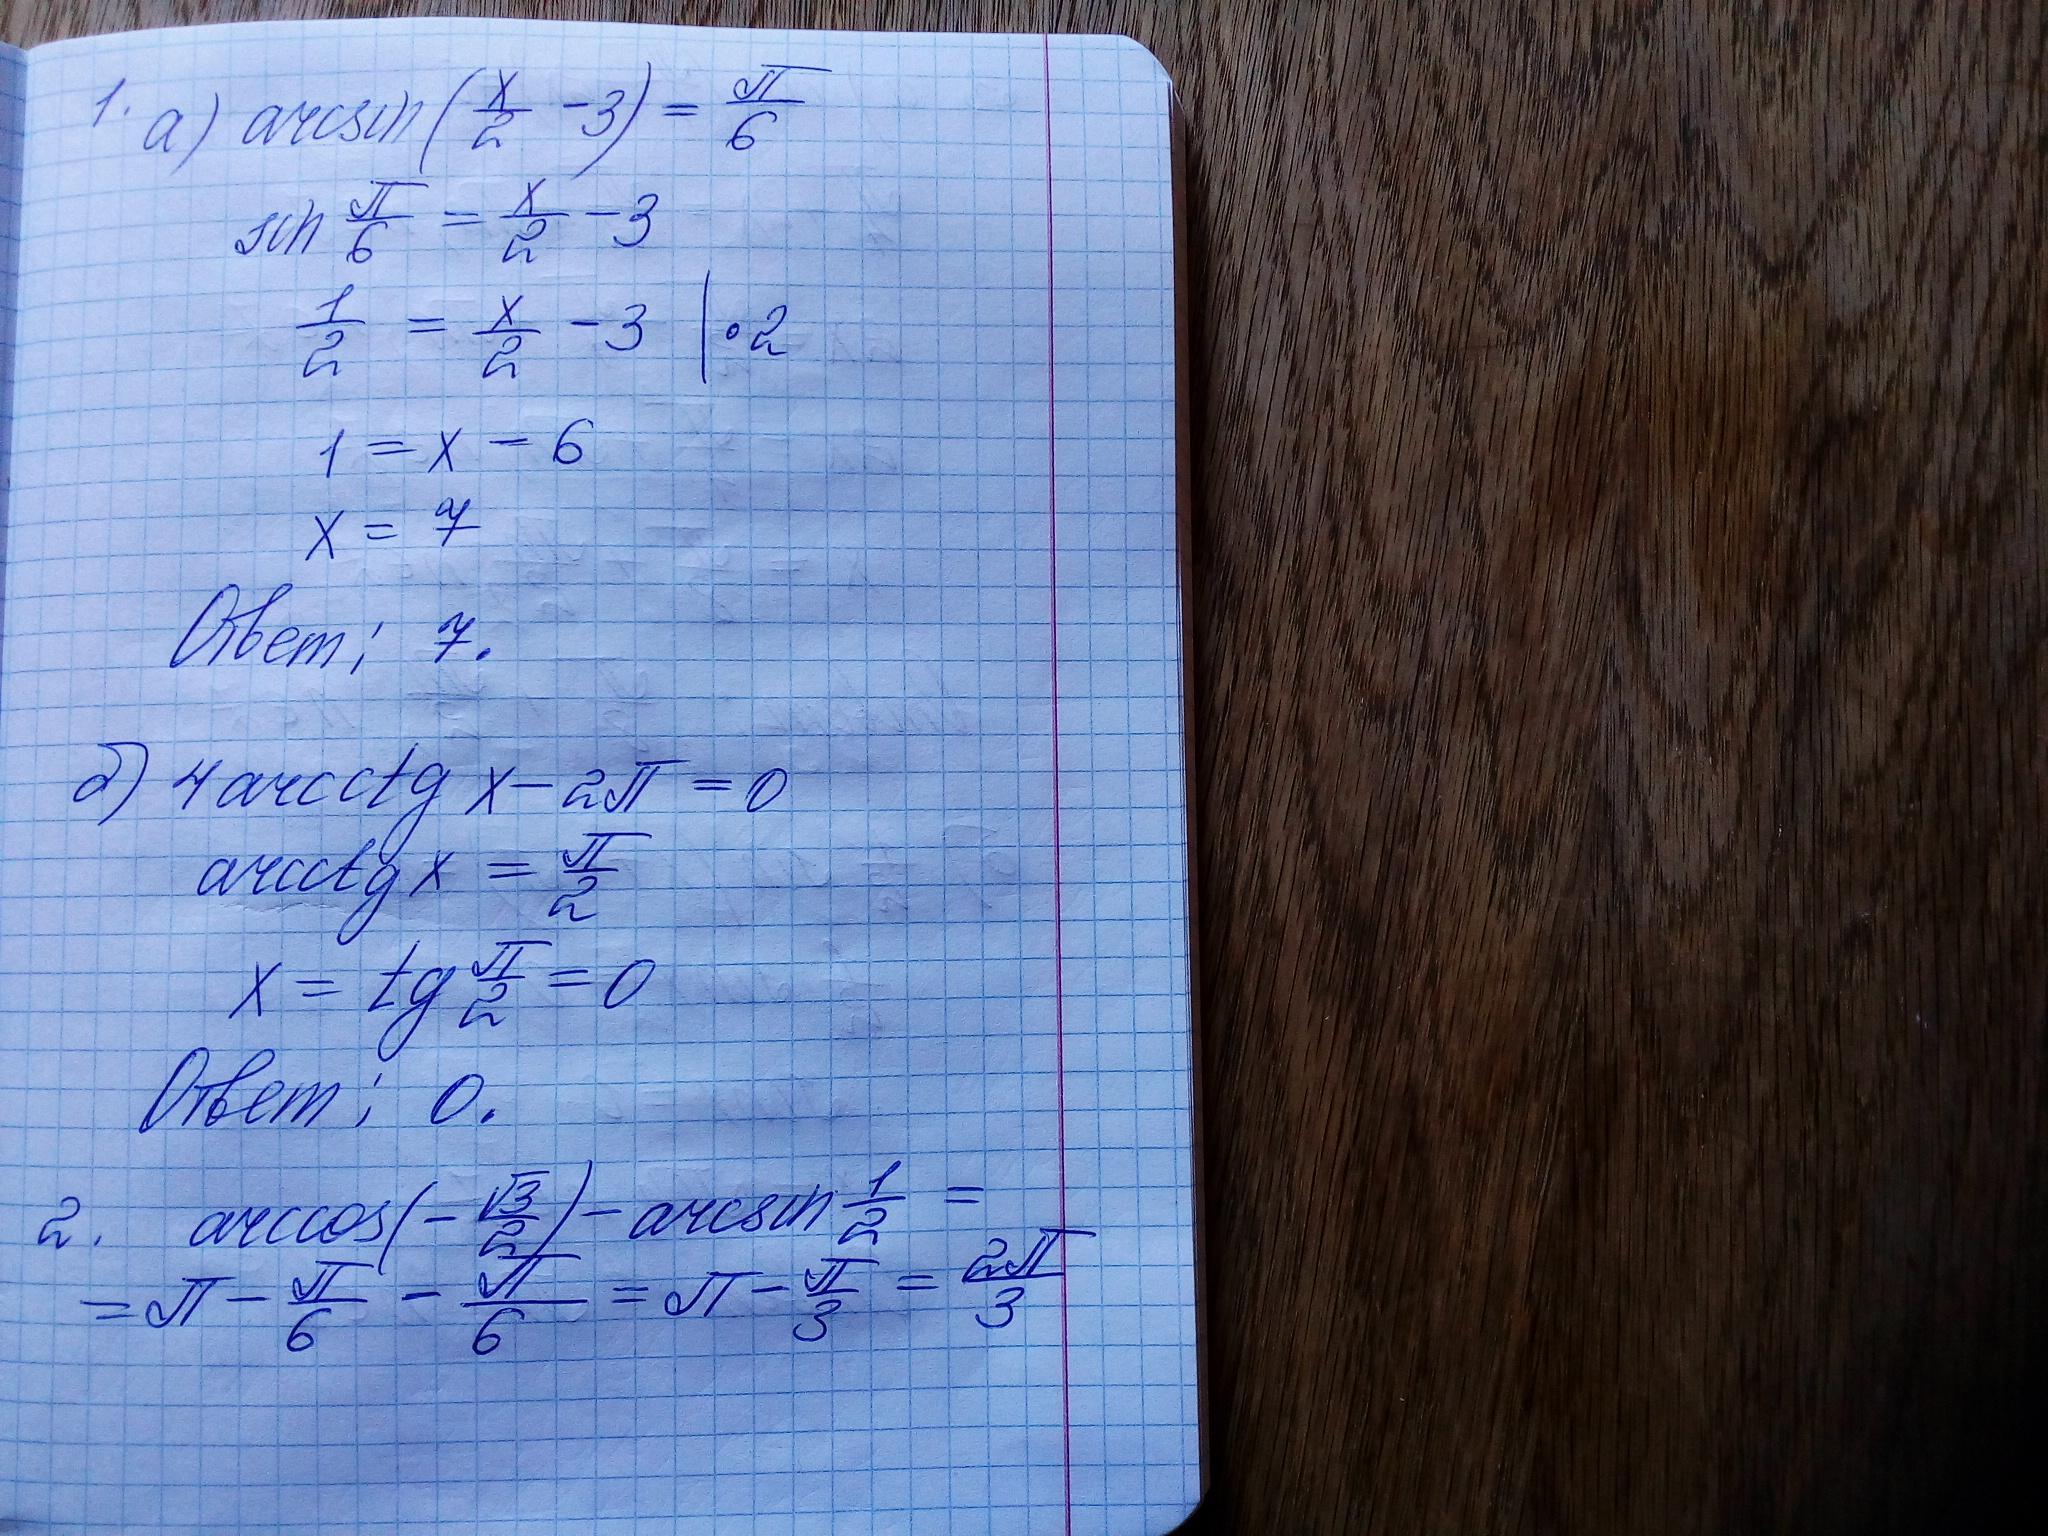 1. а) arcsin(x/2 - 3) = π/6
sin π/6 = x/2 - 3
1/2 = x/2 - 3 | · 2
1 = x - 6
x = 7
Ответ: 7.
б) 4 arcctg x - 2π = 0
arcctg x = π/2
x = tg π/2 = 0
Ответ: 0.
2. arccos(-√3/2) - arcsin 1/2 =
= π - π/6 - π/6 = π - π/3 = 2π/3